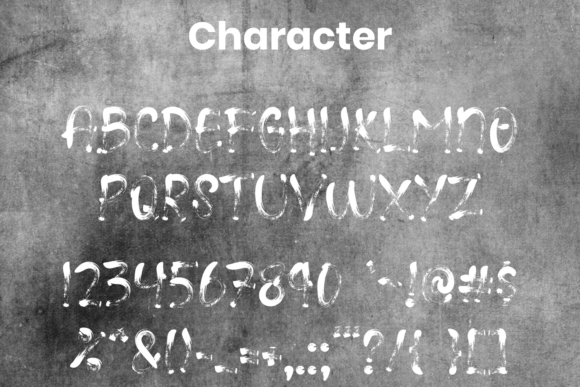 Character
ABCDEFGHIJKLMNO
PQRSTUVWXYZ
1234567890 `~!@#$
%^&()-_=+,:;"?/{ }[]